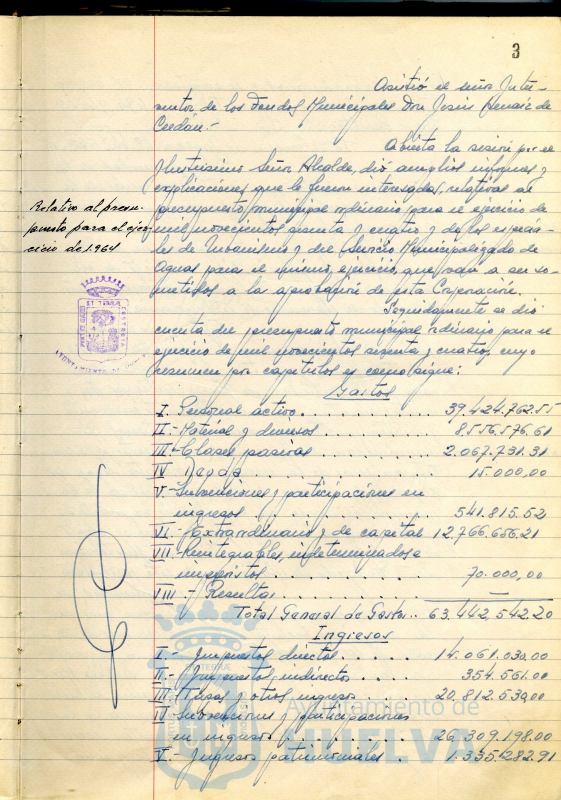 3
Asistió el señor Inter-
ventor de los Fondos Municipales Don Jesús de
Cerdán.-
Abierta la sesión por el
Ilustrísimo Señor Alcalde, dió amplios informes y
explicaciones que le fueron interesadas, relativas al
presupuesto municipal ordinario para el ejercicio de
mil novecientos sesenta y cuatro y de los especia-
les de Urbanismo y del Servicio Municipalizado de
Aguas para el mismo ejercicio, que van a ser so-
metidos a la aprobación de esta Corporación.
Relativo al presu-
puesto para el ejer-
cicio de 1.964
Seguidamente se dió
cuenta del presupuesto municipal ordinario para el
ejercicio de mil novecientos sesenta y cuatro, cuyo
resumen por capítulos es como sigue:
Gastos
I.- Personal activo . . . . . . . . . . . 39.424.762.55
II.- Material y diversos . . . . . . . . . . 8.556.576.61
III.- Clases pasivas . . . . . . . . . . 2.067.731.31
IV Deuda . . . . . . . . . . . 15.000,00
V.- Subvenciones y participaciones en
ingresos . . . . . . . . . . 541.815.52
VI.- Extraordinarios y de capital 12.766.656.21
VII.- Reintegrables, indeterminados e
imprevistos . . . . . . . . . 70.000,00
VIII.- Resultas . . . . . . . . . —
Total General de Gastos.. 63.442,542.20
Ingresos
I.- Impuestos directos . . . . . 14.061.030.00
II.- Impuestos indirectos . . . . 354.561.00
III Tasas y otros ingresos . . . . 20.812.530,00
IV Subvenciones y participaciones
en ingresos . . . . . . . . . 26.309.198.00
V.- Ingresos patrimoniales . . 1.335.282.91
Ayuntamiento de
HUELVA